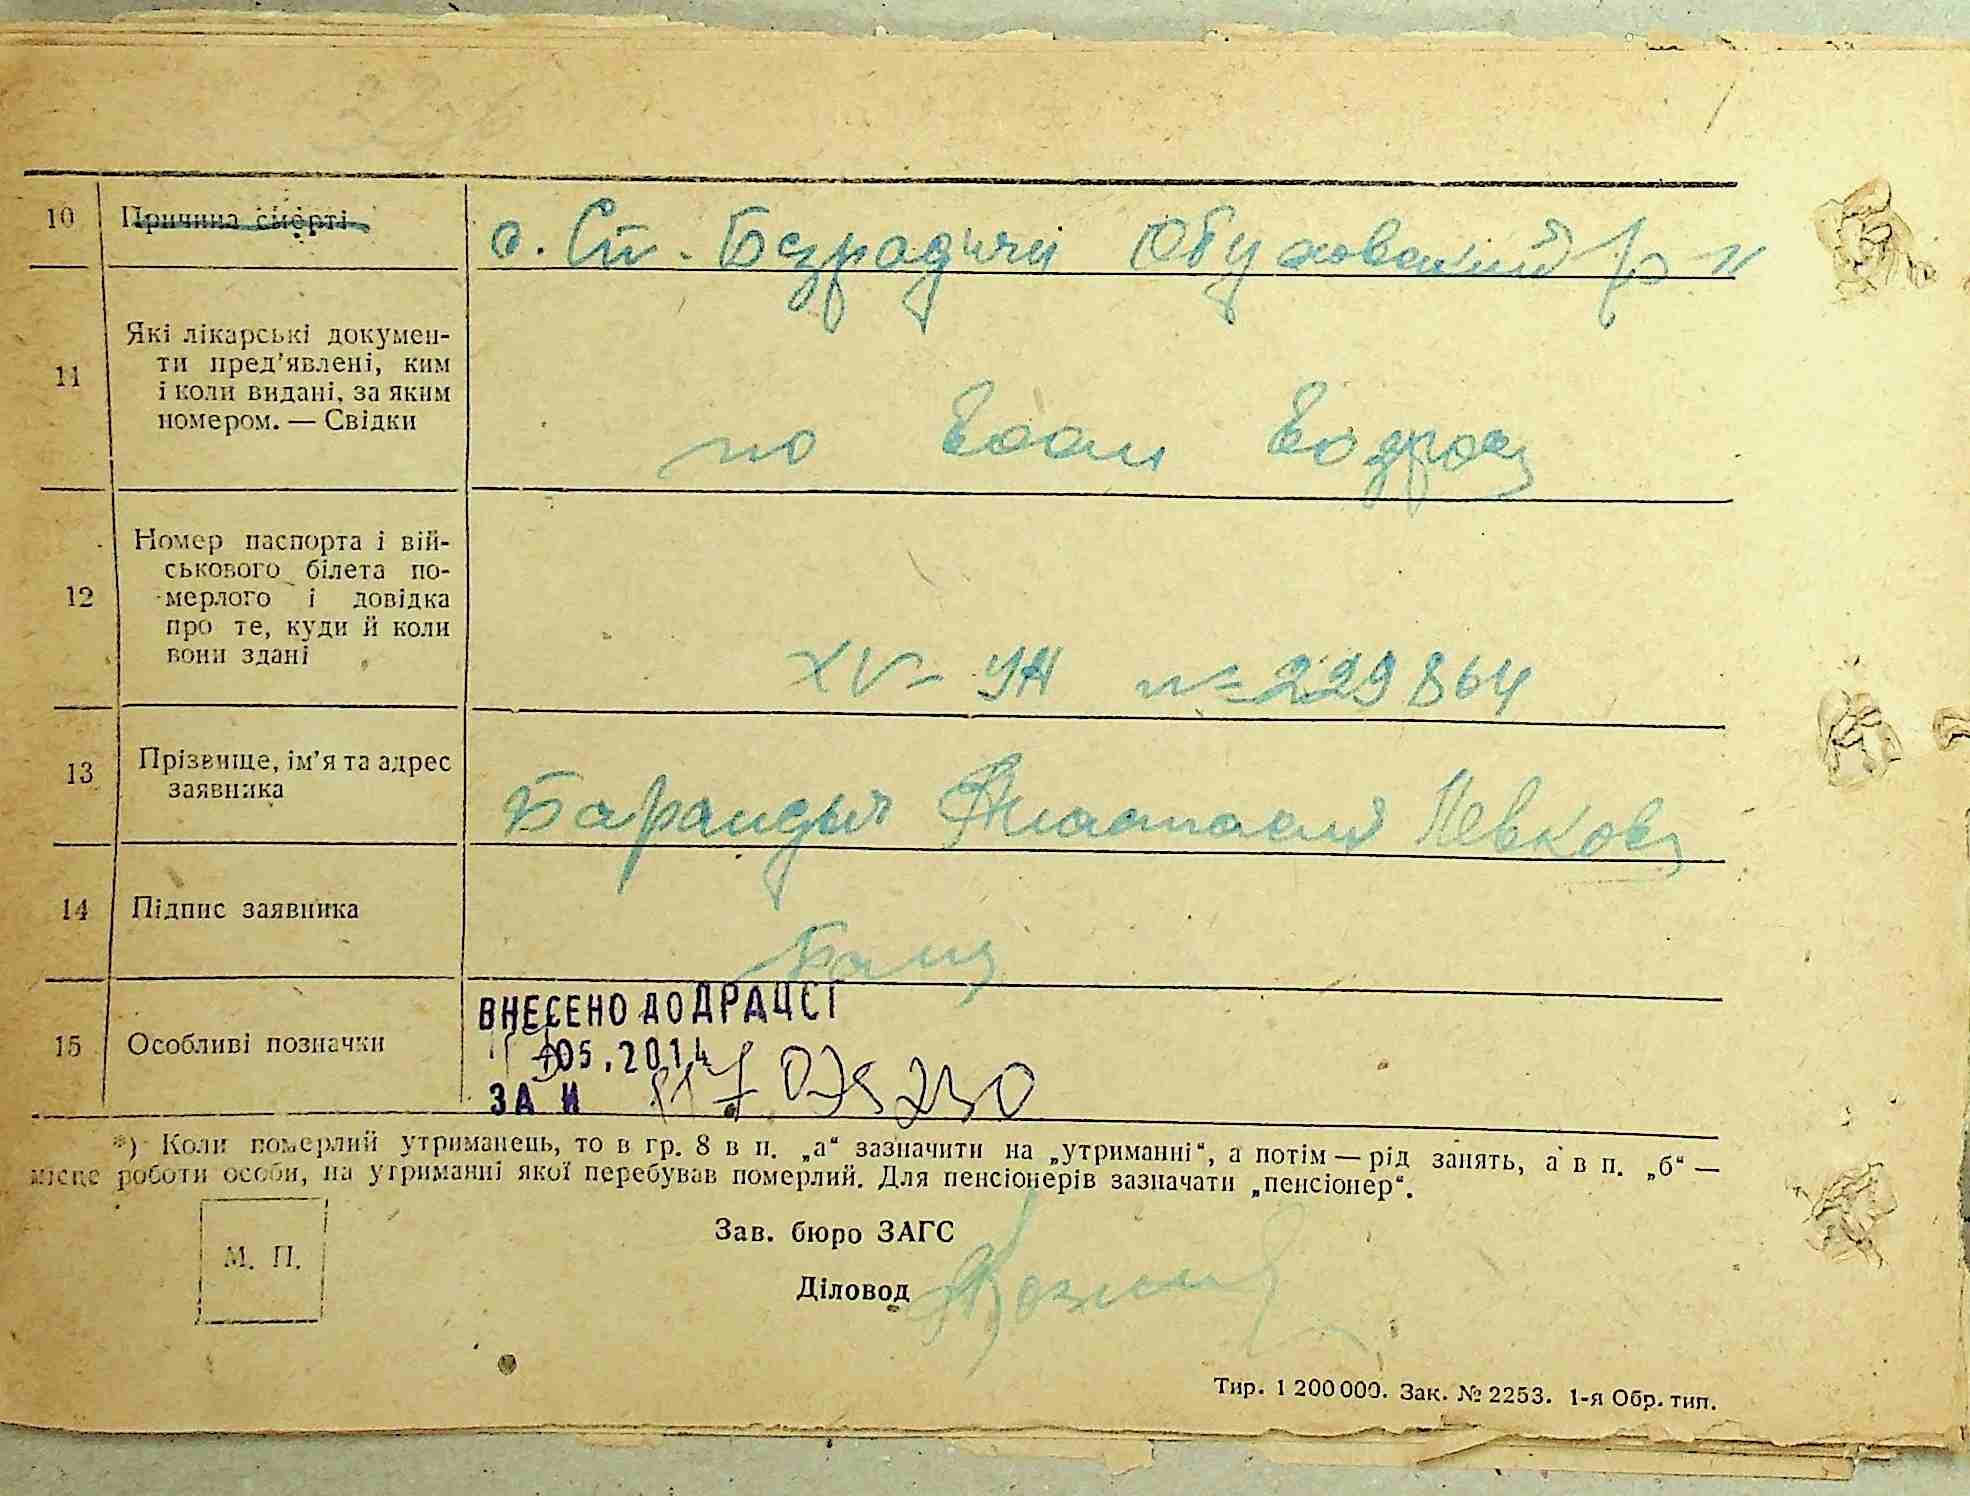 10 Причина смерті
с. Ст. Безрадичи Обуховский р-н
11 Які лікарські докумен-
ти пред'явлені, ким
і коли видані, за яким
номером. — Свідки
по
12 Номер паспорта і вій-
ськового білета по-
мерлого і довідка
про те, куди й коли
вони здані
XV - УН № 229864
13 Прізвище, ім'я та адрес
заявника
14 Підпис заявника
15 Особливі позначки
ВНЕСЕНО ДО ДРАЦСГ
05.2014
ЗА И
*) Коли померлий утриманець, то в гр. 8 в п. „а“ зазначити на „утриманні“, а потім — рід занять, а в п. „б“ —
місце роботи особи, на утриманні якої перебував померлий. Для пенсіонерів зазначати „пенсіонер“.
М. П.
Зав. бюро ЗАГС
Діловод
Тир. 1 200 000. Зак. № 2253. 1-я Обр. тип.